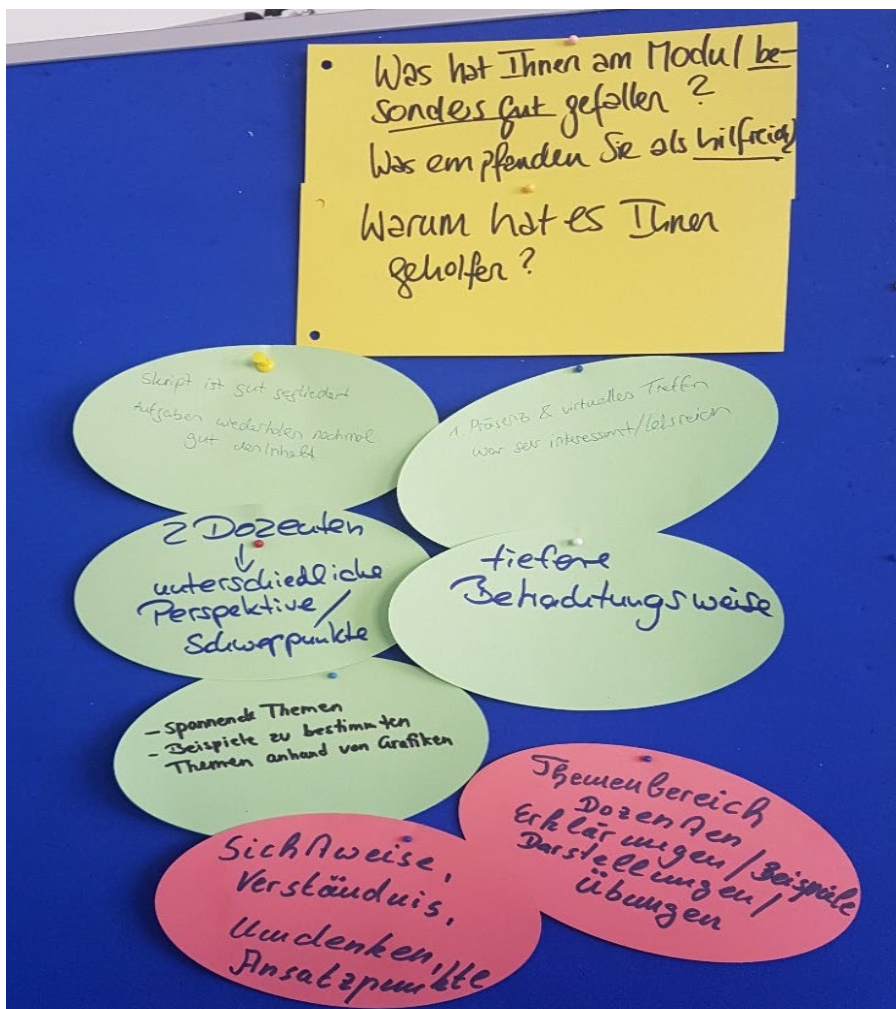 Was hat Ihnen am Modul be-
sonders gut gefallen?
Was empfinden Sie als hilfreich
Warum hat es Ihnen
geholfen?
Skript ist gut gegliedert
Aufgaben wiederholen nochmal
gut den Inhalt
1. Präsenz & virtuelles Treffen
war sehr interessant/lehrreich
2 Dozenten
↓
unterschiedliche
Perspektive/
Schwerpunkte
tiefere
Betrachtungsweise
- spannende Themen
- Beispiele zu bestimmten
Themen anhand von Grafiken
Themenbereich
Dozenten
Erklärungen/Beispiele
Darstellungen/
Übungen
Sichtweise,
Verständnis,
Umdenken,
Ansatzpunkte